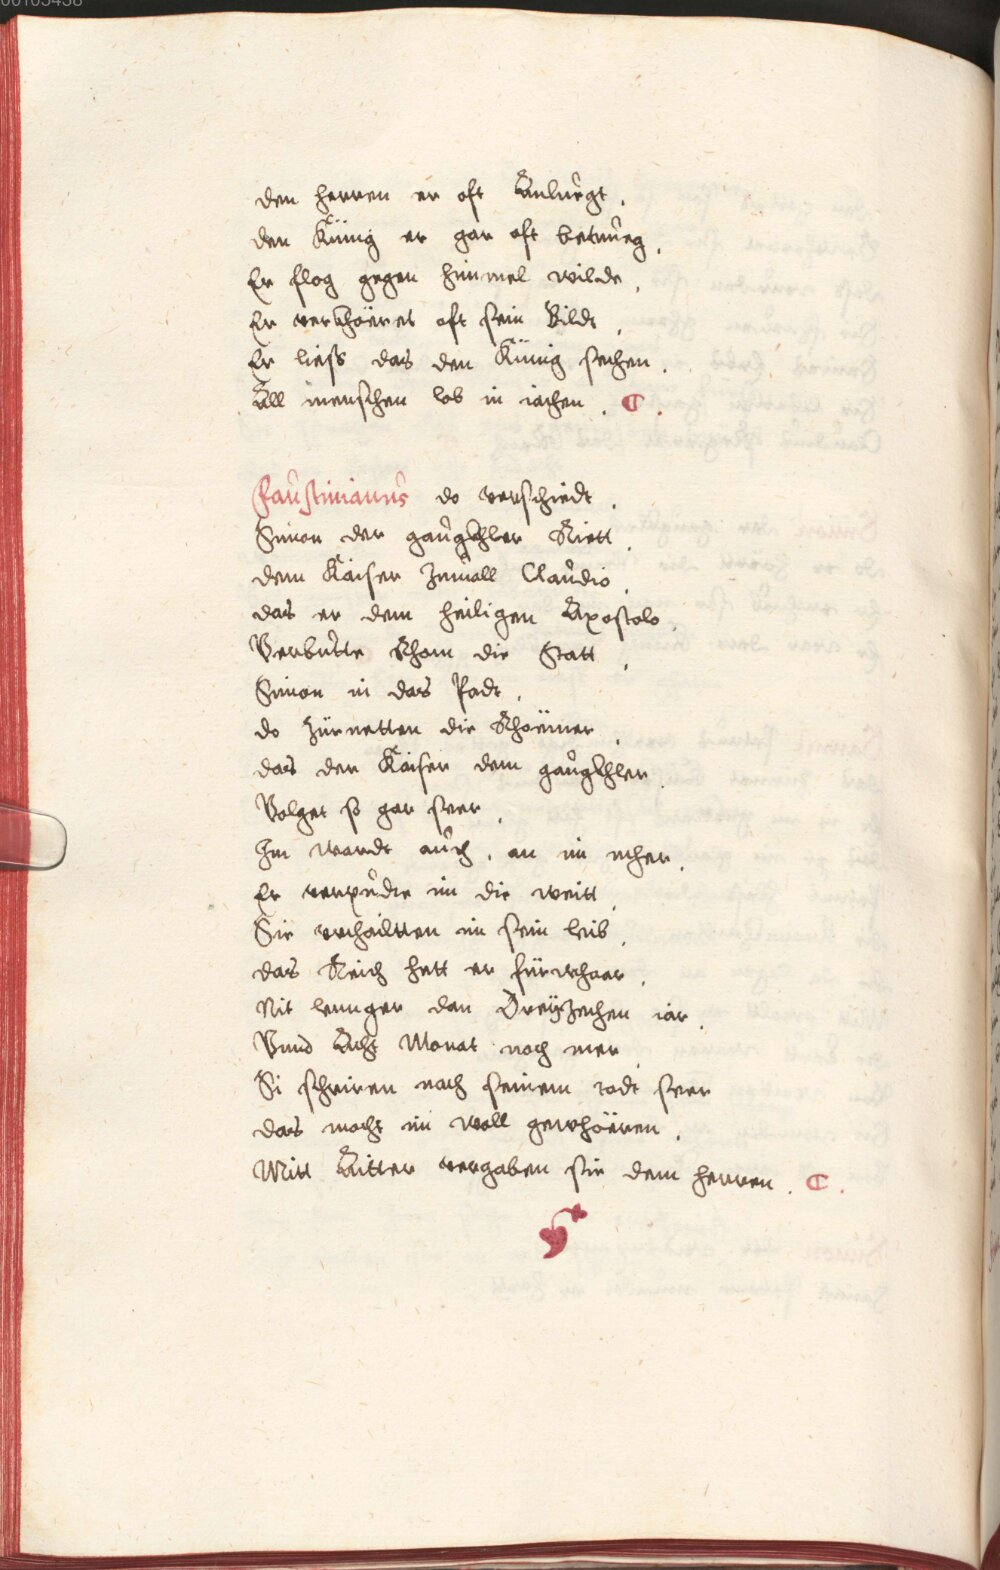 00105458
den herren er oft Anlüegt.
den Künig er gar oft betrüeg.
Er flog gegen himmel wilde.
Er verkhöeret oft sein Bildt.
Er liess das den Künig sechen.
All menschen lob in iachen. C.
Faustinianus do verschiedt.
Simon der gaugkhler Riett.
dem Kaiser Zumall Claudio.
das er dem heiligen Apostolo.
Verbutte Rhom die Statt.
Simon in das Padt.
do Zürnetten die Rhoëmer.
das der Kaiser dem gaugkhler.
Volget so gar seer.
Im wardt auch, an im
Er im die weitt.
Sie im sein leib.
das Reich hett er fürwhaar.
Nit lennger dan Dreÿzechen iar.
Vnnd Acht Monat noch mer.
Si schriren nach seinem todt seer
das mocht im woll gewhöeren.
Mitt Aitter vergaben sie dem herren. C.